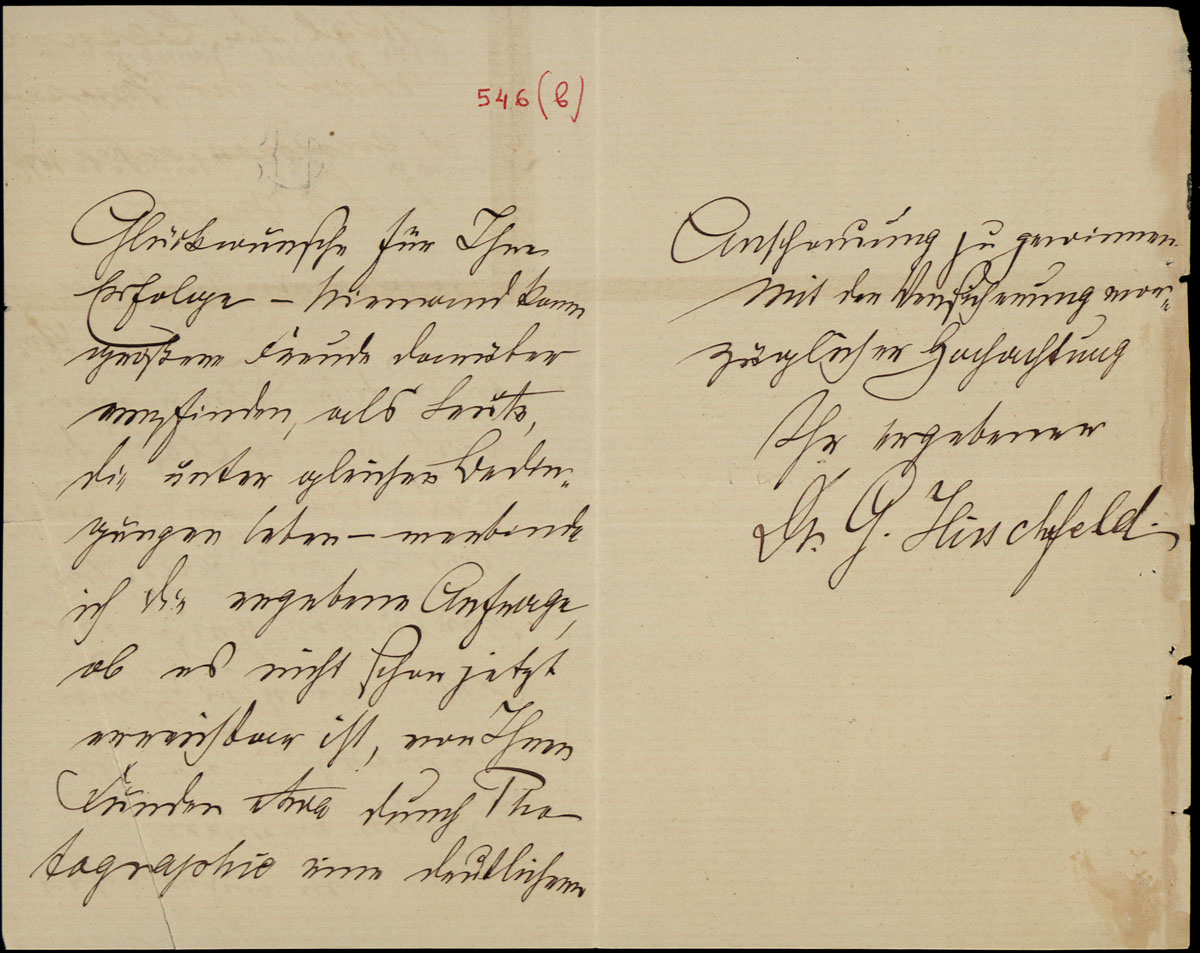 546 (b)
Glückwunsche für Ihre
Erfolge – Niemand kann
größere Freude darüber
empfinden, als Leute,
die unter gleichen Bedin-
gungen leben – verbinde
ich die ergebene Anfrage,
ob es nicht schon jetzt
erreichbar ist, von Ihren
Funden etwa durch Pho-
tographie eine deutlichere
Anschauung zu gewinnen.
Mit der Versicherung vor-
züglicher Hochachtung
Ihr ergebener
Dr. G. Hirschfeld.